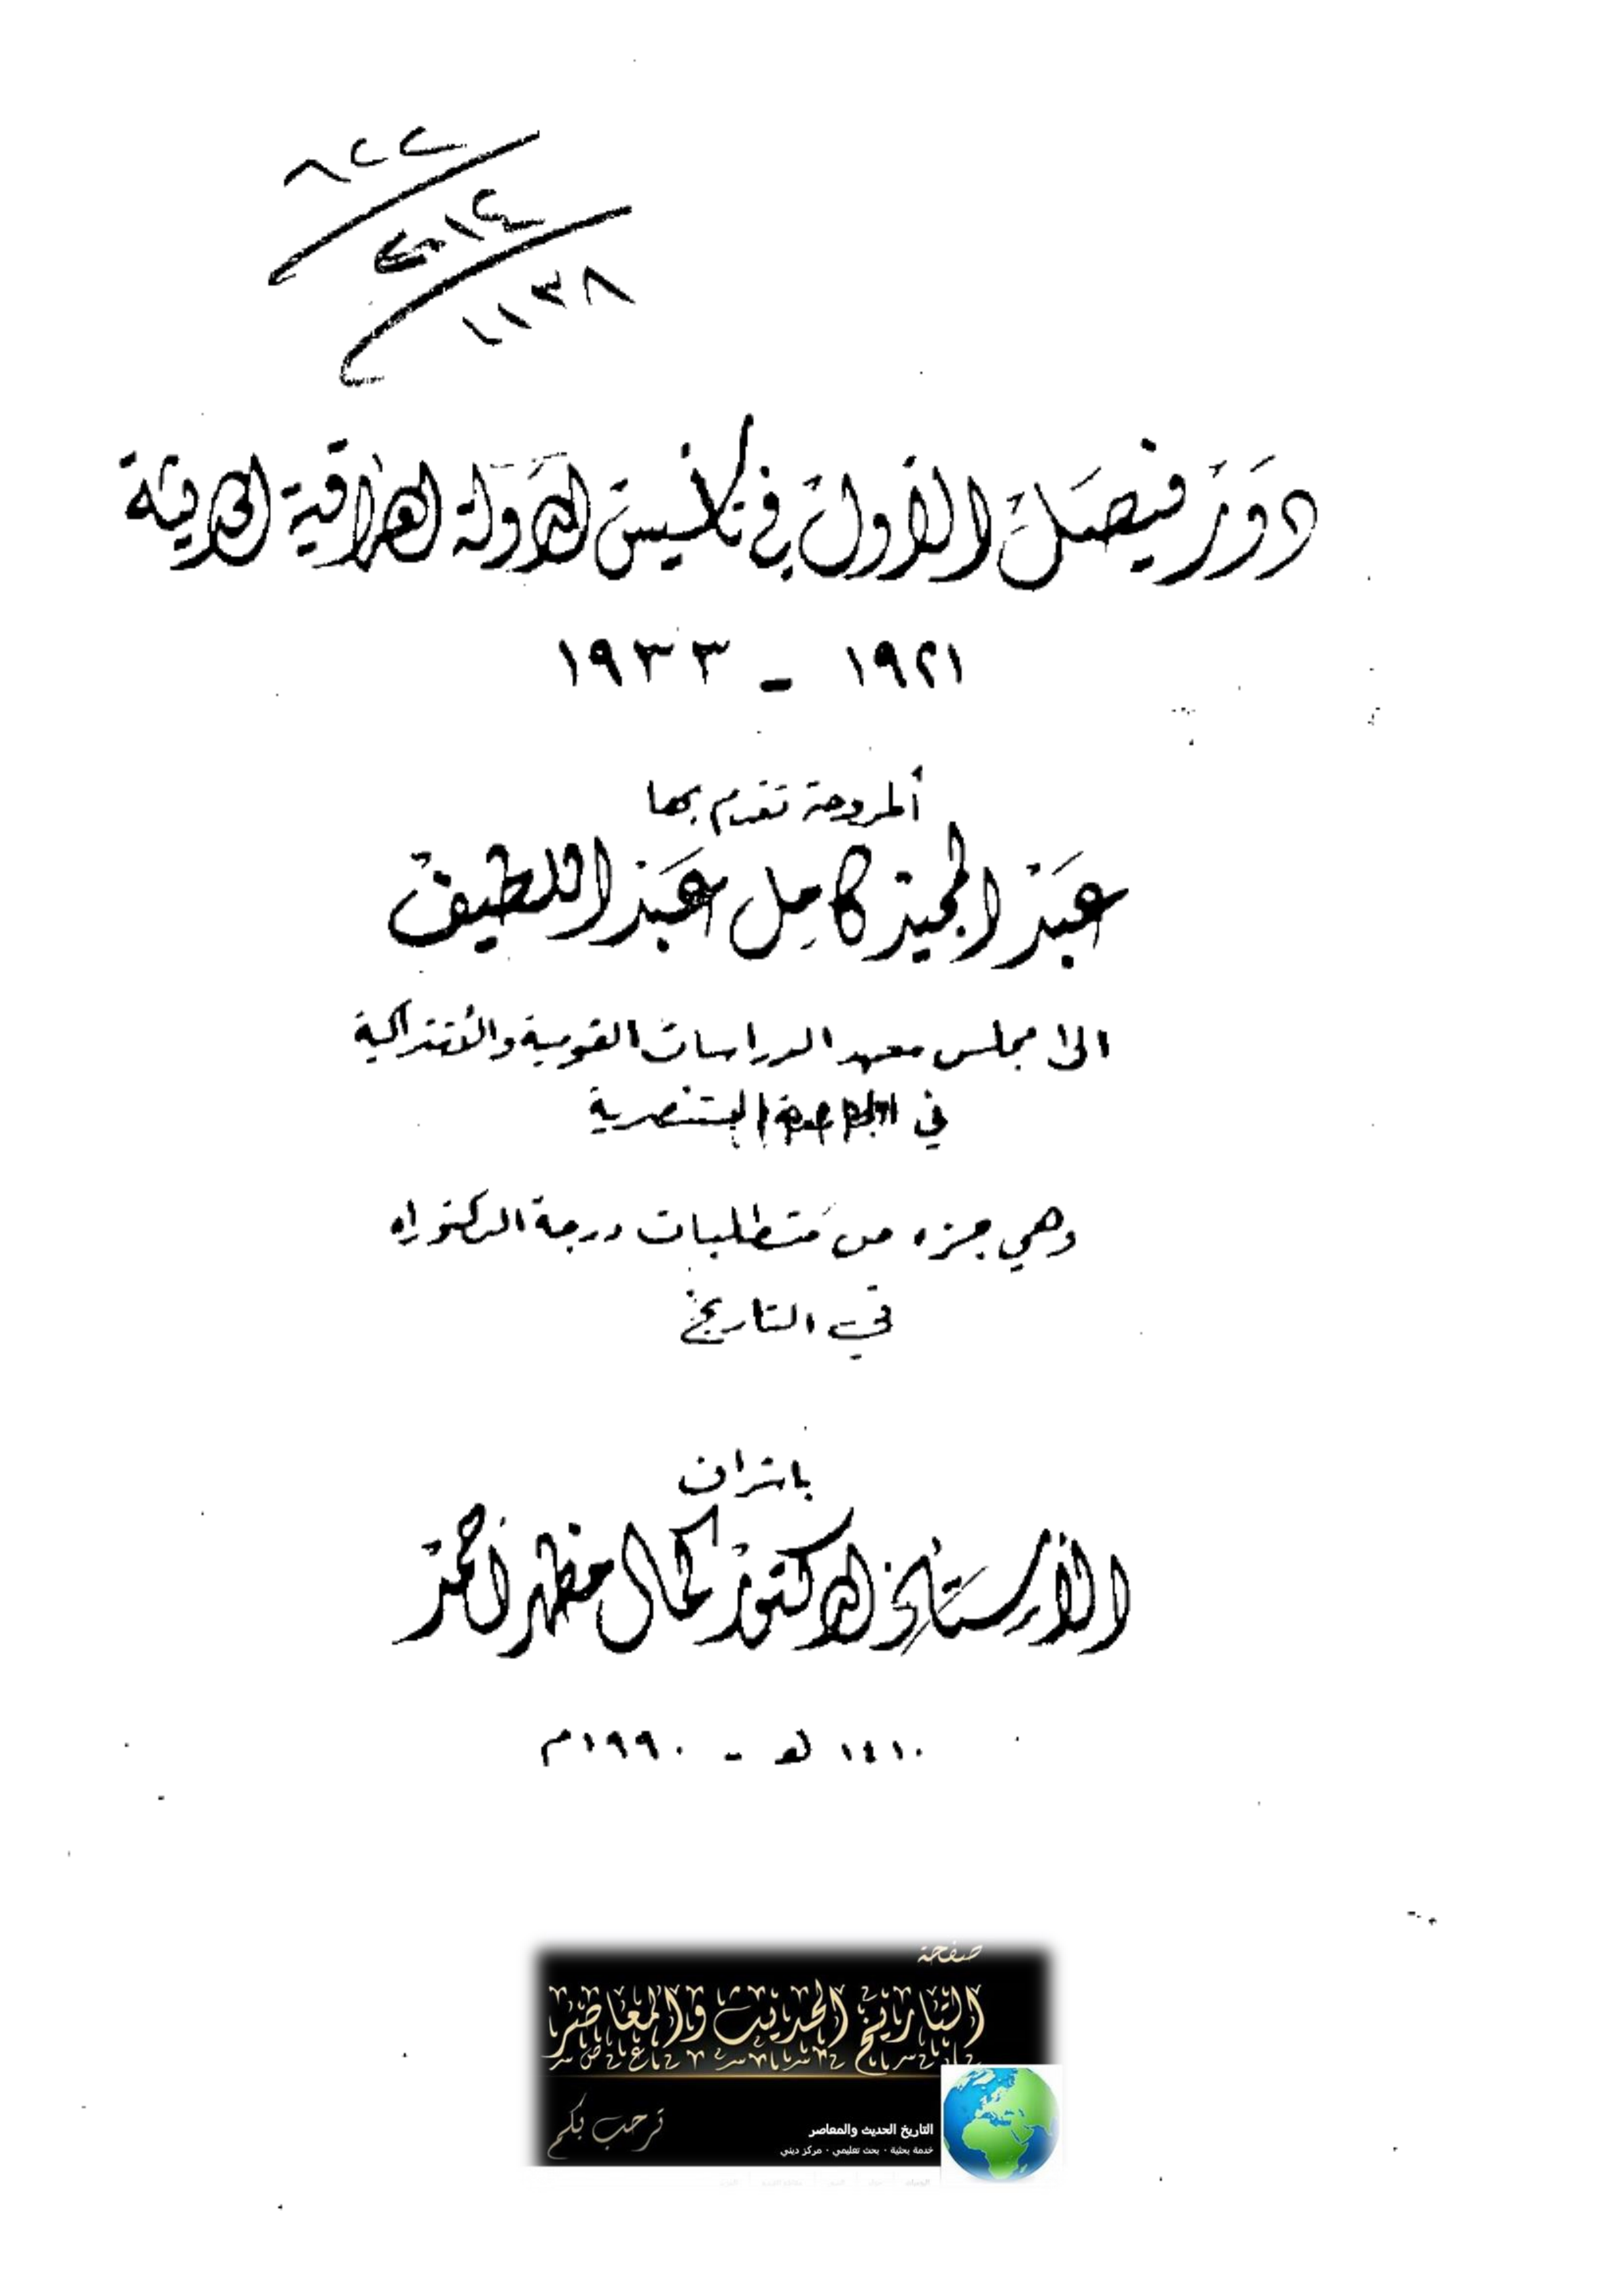 ٨٢٢
١١٣٨
دور فيصل الأول في تأسيس الدولة العراقية الحديثة
١٩٢١ - ١٩٣٣
أطروحة تقدم بها
عبد المجيد كامل عبد اللطيف
الى مجلس معهد الدراسات القومية والأشتراكية
في الجامعة المستنصرية
وهي جزء من متطلبات درجة الدكتوراه
في التاريخ
باشراف
الأستاذ الدكتور كمال مظهر احمد
١٤١٠ هـ - ١٩٩٠م
صفحة
التاريخ الحديث والمعاصر
ترحب بكم
التاريخ الحديث والمعاصر
خدمة بحثية · بحث تعليمي · مركز ديني